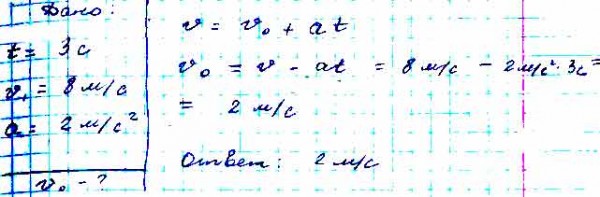 Дано:
t = 3 с
v₁ = 8 м/с
a = 2 м/с²
v₀ - ?
v = v₀ + at
v₀ = v - at = 8 м/с - 2 м/с² · 3с =
= 2 м/с
Ответ: 2 м/с